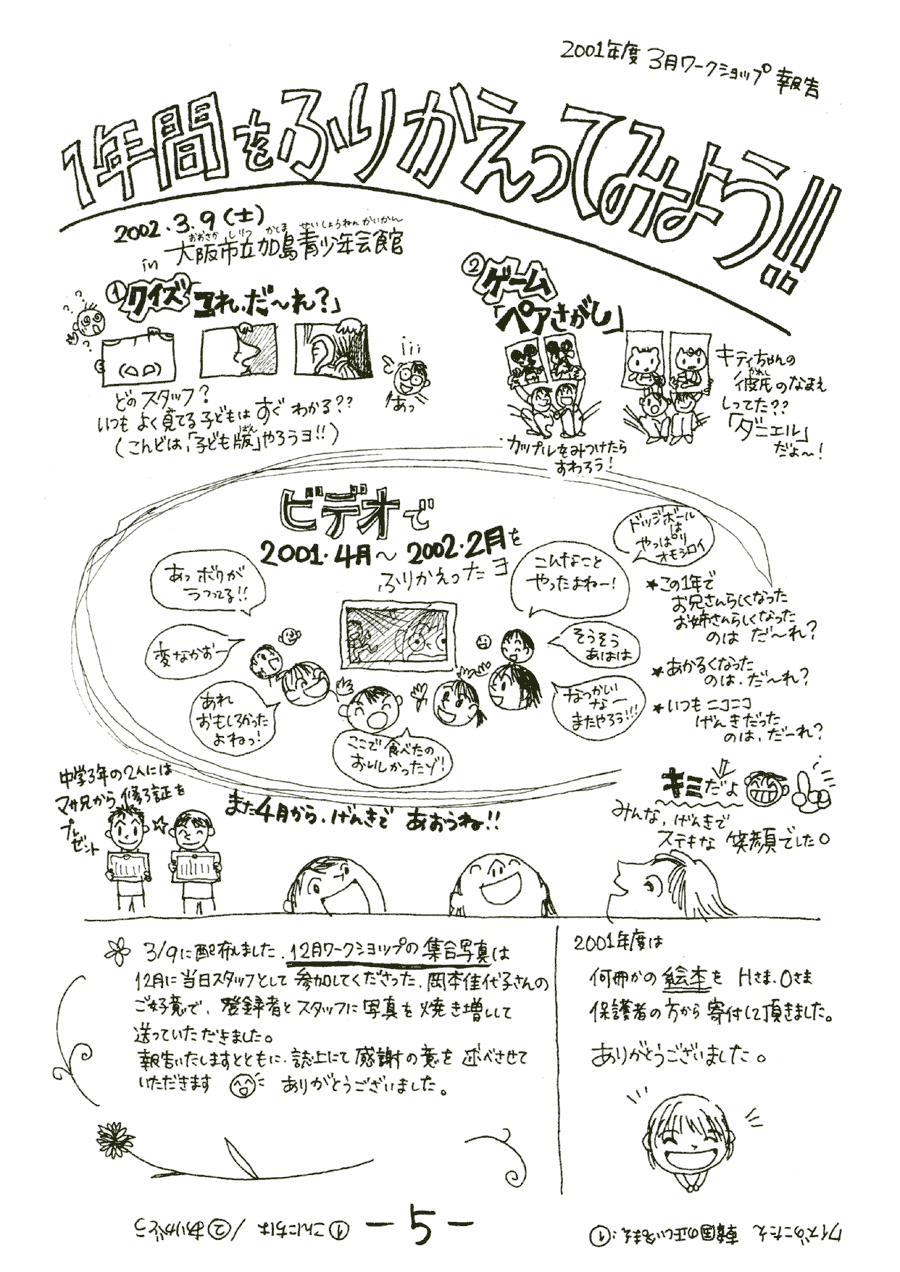 2001年度 3月ワークショップ 報告
1年間をふりかえってみよう!!!
2002.3.9(土)
in 大阪市立加島青少年会館
おおさか しりつ かしま せいしょうねんかいかん
① クイズ「これ、だ〜れ?」
どのスタッフ?
いつもよく見てる子どもはすぐわかる??
(こんどは、「子ども版」やろうヨ!!)
ばん
あっ
② ゲーム
「ペアさがし」
カップルをみつけたら
すわろう!
キティちゃんの
彼氏のなまえ
かれし
しってた??
「ダニエル」
だよ〜!
ビデオで
2001.4月〜2002.2月を
ふりかえったヨ
あっボクが
うつってる!!
変なかお
あれ
おもしろかった
よねっ!
ここで食べたの
おいしかったゾ!
こんなこと
やったよねー!
ドッジボール
は
やっぱり
オモシロイ
そうそう
あはは
なつかしい
なー
またやろう!!!
★この1年で
お兄さんらしくなった
お姉さんらしくなった
のは だ〜れ?
★あかるくなった
のは、だ〜れ?
★いつもニコニコ
げんきだった
のは、だーれ?
キミだよ
みんな、げんきで
ステキな 笑顔でした。
中学3年の2人には
マサ兄から 修了証を
プレゼント
また4月から、げんきで あおうね!!
3/9に配布しました、12月ワークショップの集合写真は
12月に当日スタッフとして参加してくださった、岡本佳代子さんの
ご好意で、登録者とスタッフに写真を焼き増しして
送っていただきました。
報告いたしますとともに、誌上にて感謝の意を述べさせて
いただきます ありがとうございました。
2001年度は
何冊かの絵本を Hさま、Oさま
保護者の方から寄付して頂きました。
ありがとうございました。
-5-
①こんにちは /②ありがとう